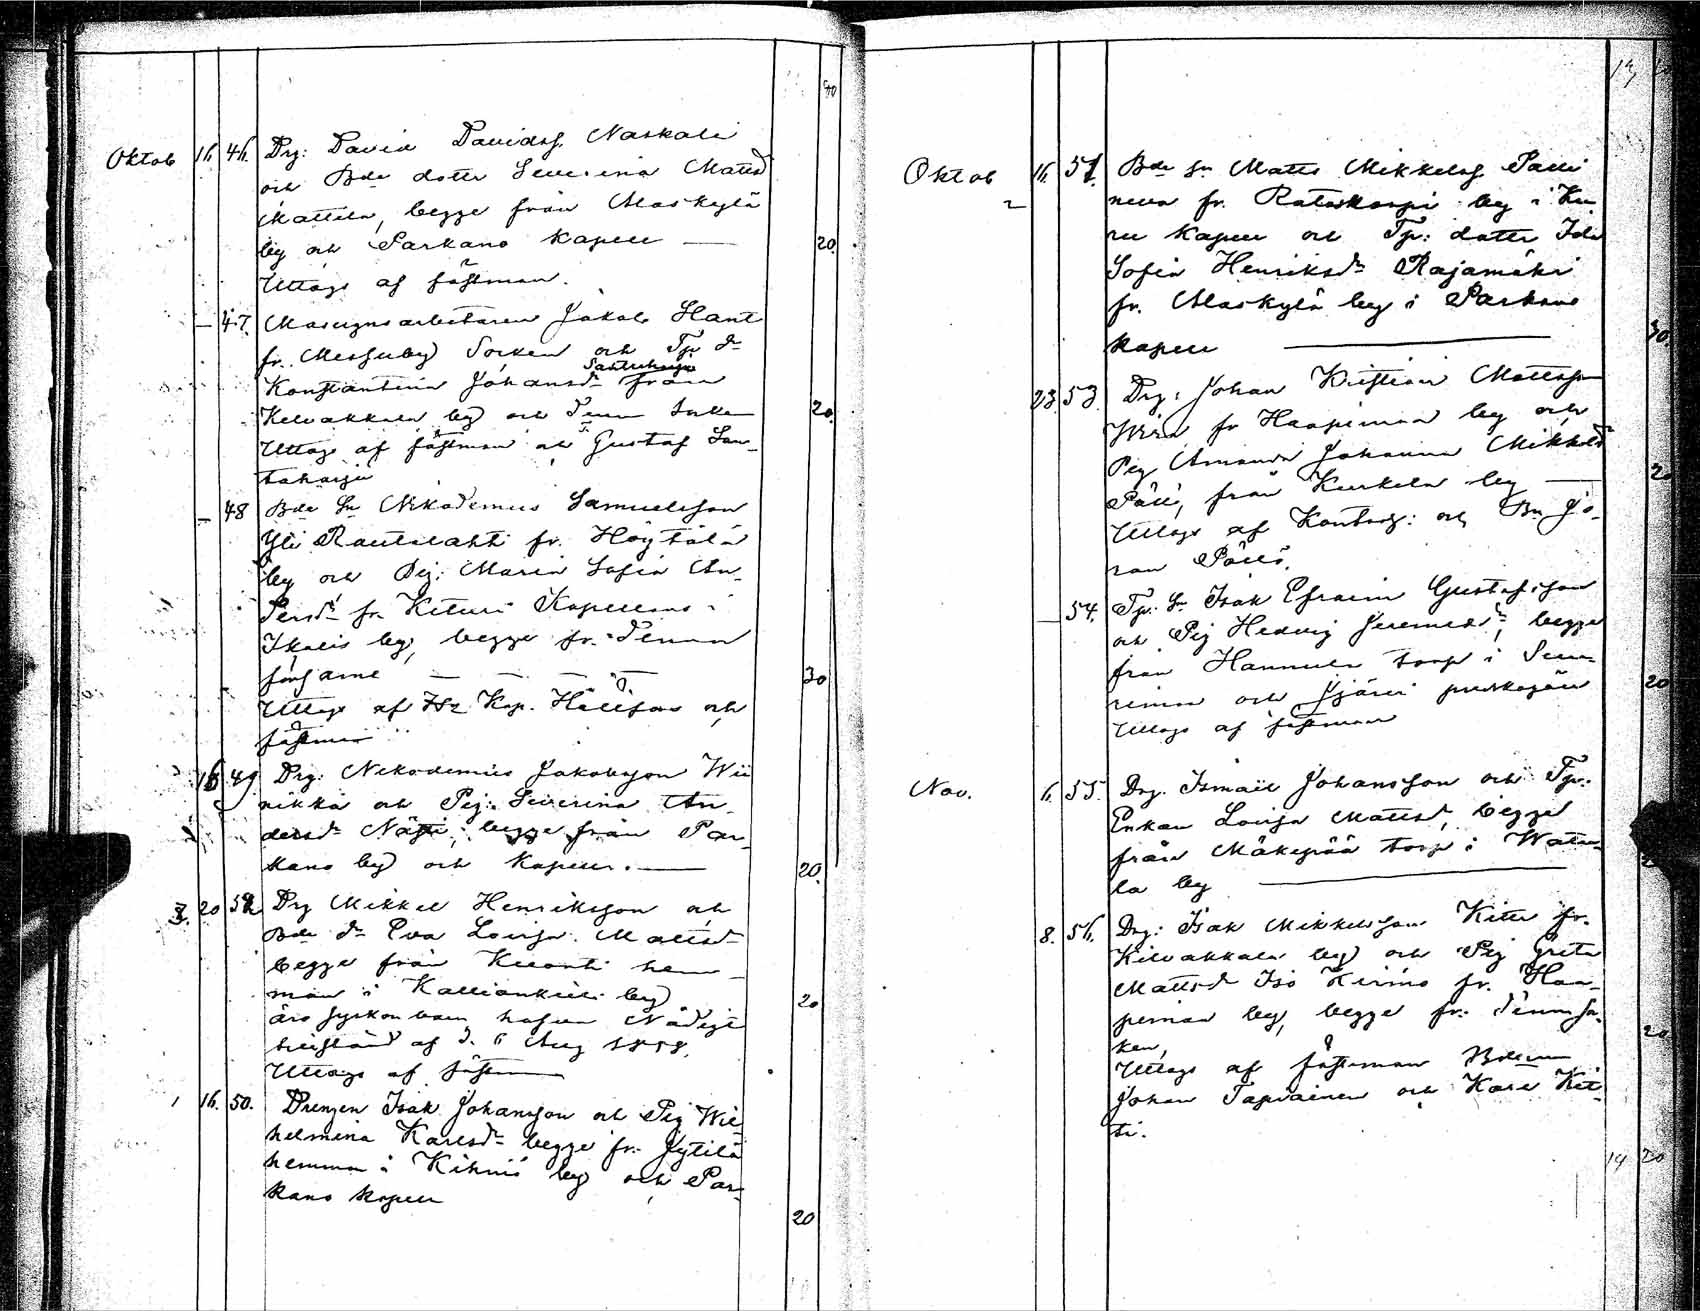 40
Oktob 16 46. Drg: David Davidsf Naskali
och Bde dotter Severina Mattsd
Mattila, begge från Alaskylä
by och Parkano kapell — 20.
Uttogs af fästman.
— 47. Jakob Hant
fr. Messuby Socken och Tp dr
Santaharju
Konstantina Johansd från
Kelvakkala by och denna Socken 20.
Uttogs af fästman och Gustaf San-
taharju
— 48 Bde Sn Nikodemus Samuelsson
Yli Rautalahti fr. Höytölä
by och Pig: Maria Sofia An-
dersdr fr. Kituri Kapellans i
Ikalis by, begge fr. denna
församl — — — — 30
Uttogs af Hr Kap. Hällfors och
fästman
16 49 Drg: Nikodemus Jakobsson Wii
nikka och Pig: Severina An-
dersdr Nätti; begge från Par-
kano by och Kapell. — 20.
20 52 Drg Mikkel Henriksson och
Bde dr Eva Lovisa Mattsdr
begge från Kuonti hem-
man i Kallionkieli by 20
äro syskonbarn, hafva Nådigt
tillstånd af d. 6 Aug 1858.
Uttogs af fästman
16. 50. Drengen Isak Johansson och Pig Wil-
helmina Karlsdr begge fr. Jytilä
hemman i Kihniö by och Par-
kano kapell
20
Oktob 16. 51. Bde Sn Matts Mikkelsf Palli
neva fr. by i Ku-
ru Kapell och Tp: dotter Ida
Sofia Henriksdr Rajamäki
fr. Alaskylä by i Parkano
kapell — 30.
23 53. Drg: Johan Kristian Mattsson
fr Haapimaa by och
Pig Amanda Johanna Mikkelsd
Pölli, från Kurkela by — 20
Uttogs af och Bn Jo-
han Pölli.
— 54. Tp: Sn Isak Efraim Gustafsson
och Pig Hedvig Jeremiasdr, begge
från Hannula torp i
och 20
Uttogs af fästman
Nov. 6. 55. Drg. Ismael Johansson och Tp:
Enkan Lovisa Mattsd, begge
från Mäkepää torp i Watu-
la by —
8. 56. Drg: Isak Mikkelsson Kitti fr.
Kilvakkala by och Pig Greta
Mattsd Iso Kirmo fr. Haa-
pimaa by, begge fr. denna so-
cken, 20
Uttogs af fästman Bden
Johan Tapiainen och Karl Kit-
ti.
14 20